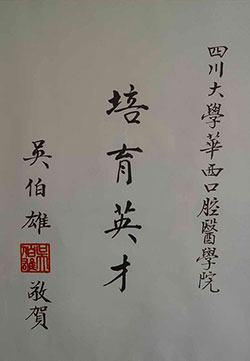 四川大學華西口腔醫學院
培育英才
吳伯雄
吳伯雄
敬賀